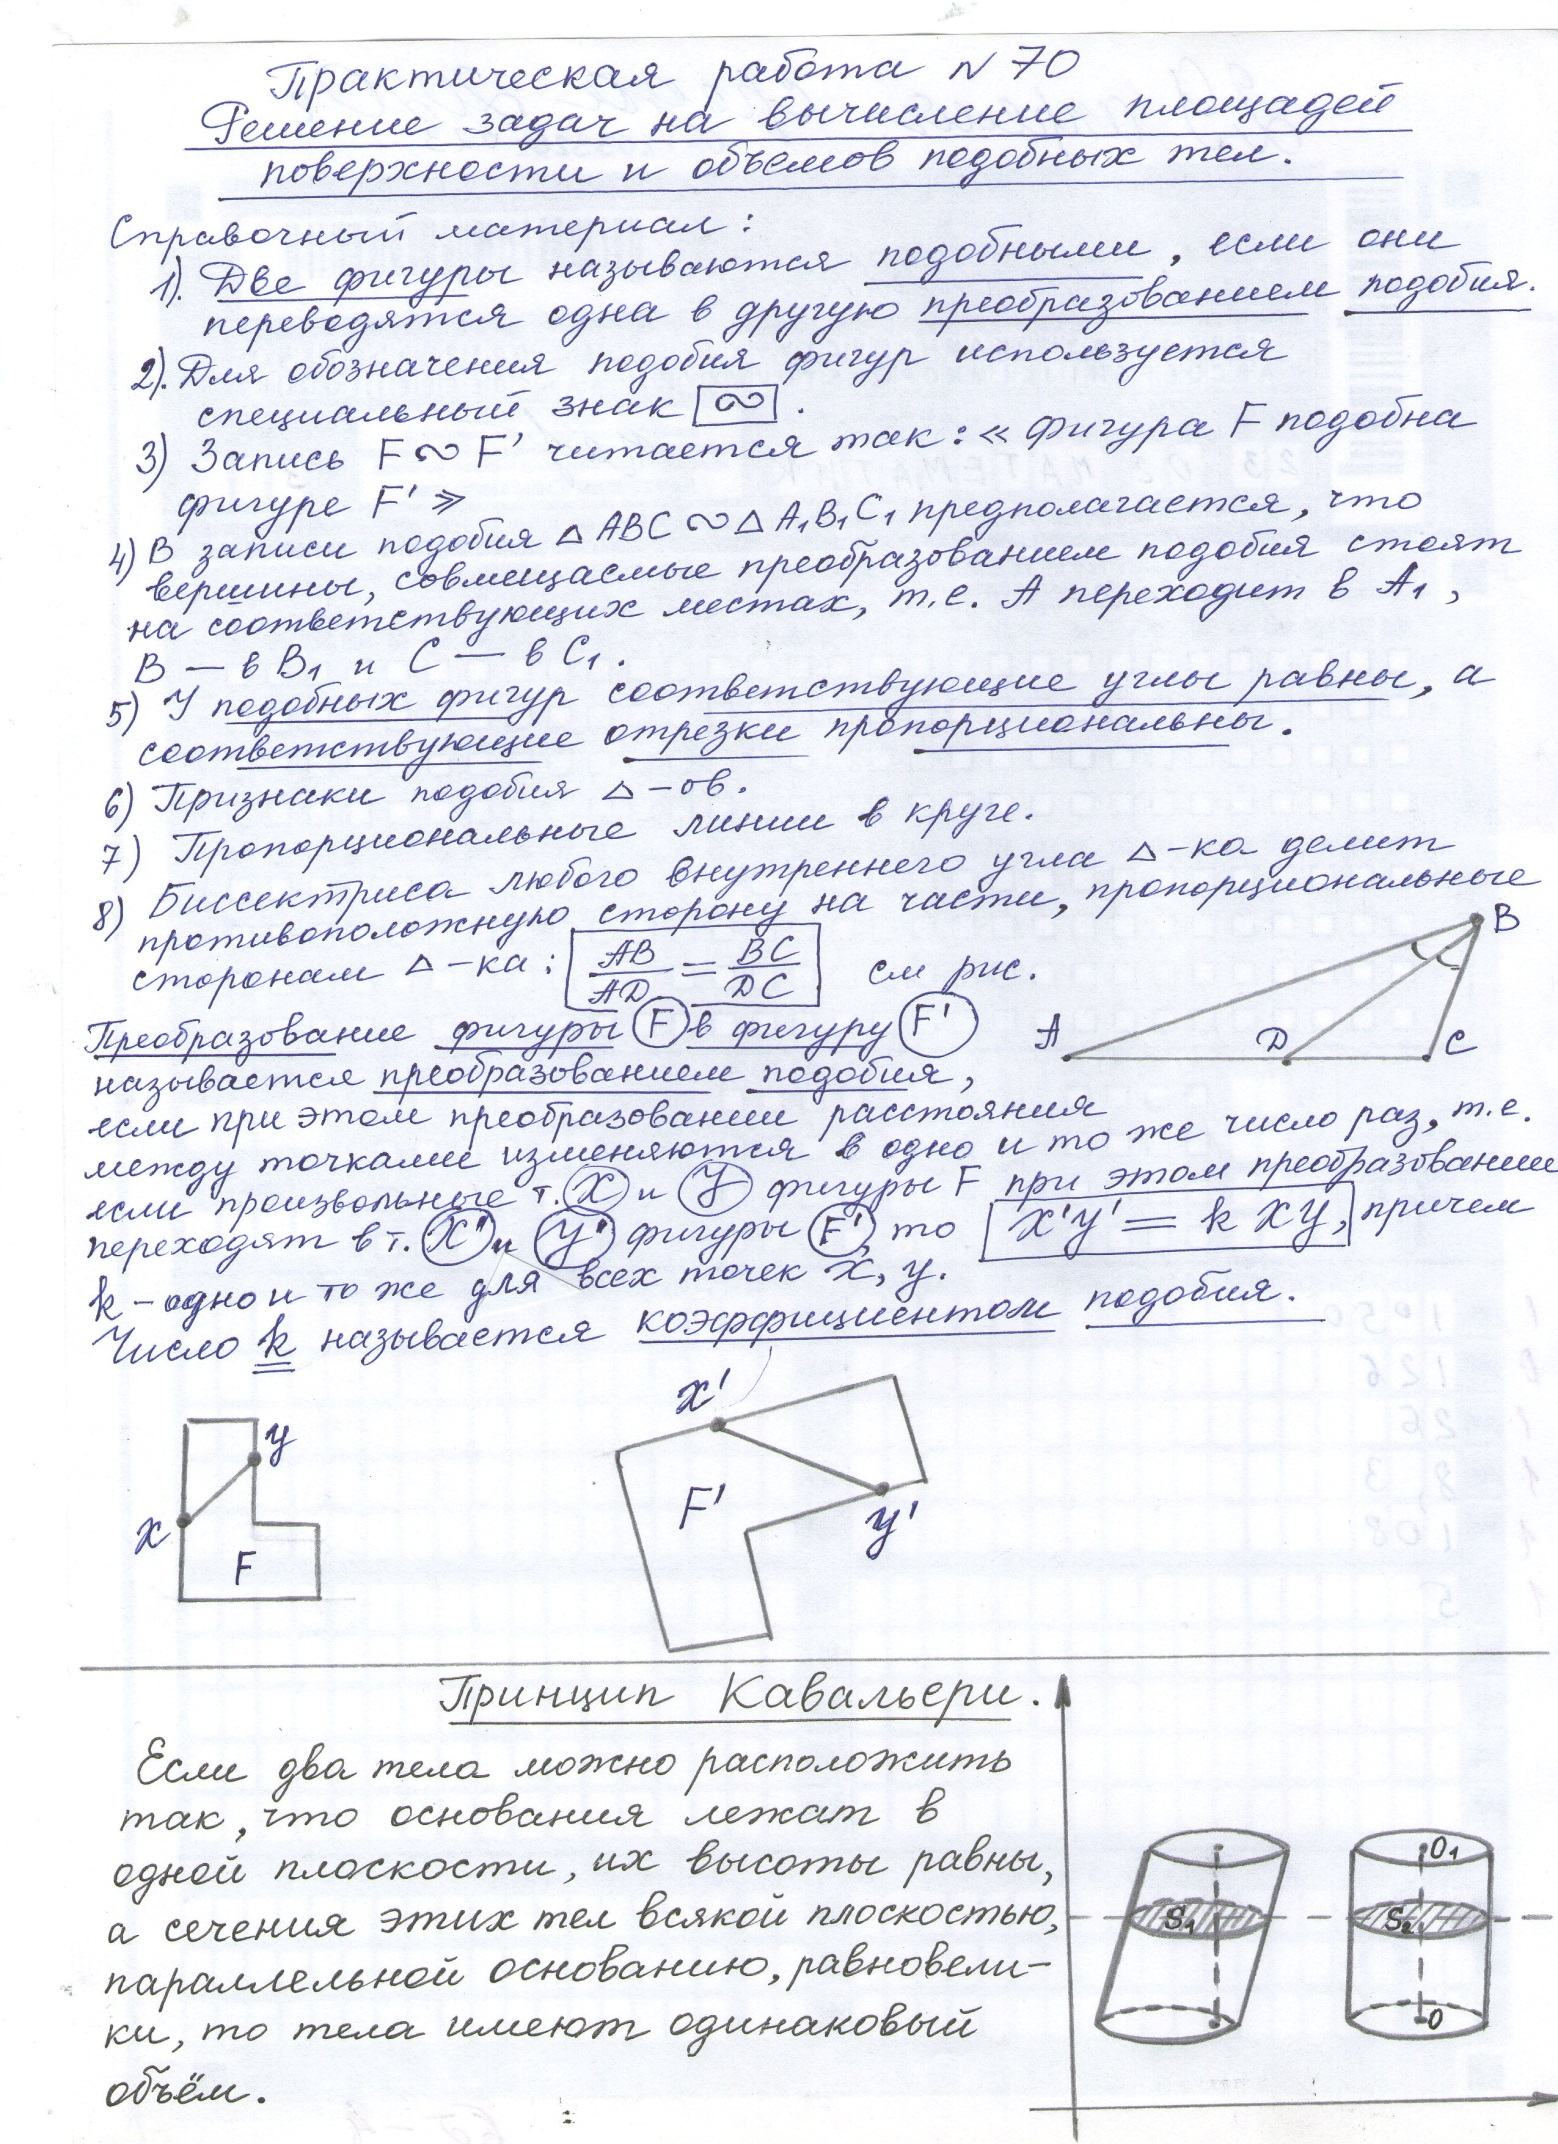 Практическая работа № 70
Решение задач на вычисление площадей
поверхности и объемов подобных тел.
Справочный материал:
1). Две фигуры называются подобными, если они
переводятся одна в другую преобразованием подобия.
2). Для обозначения подобия фигур используется
специальный знак ∾.
3) Запись F ∾ F' читается так: « Фигура F подобна
фигуре F' »
4) В записи подобия △ ABC ∾ △ A₁B₁C₁ предполагается, что
вершины, совмещаемые преобразованием подобия стоят
на соответствующих местах, т.е. A переходит в A₁,
B — в B₁ и C — в C₁.
5) У подобных фигур соответствующие углы равны, а
соответствующие отрезки пропорциональны.
6) Признаки подобия △-ов.
7) Пропорциональные линии в круге.
8) Биссектриса любого внутреннего угла △-ка делит
противоположную сторону на части, пропорциональные
сторонам △-ка: AB/AD = BC/DC см рис.
B
A D C
Преобразование фигуры F в фигуру F'
называется преобразованием подобия,
если при этом преобразовании расстояния
между точками изменяются в одно и то же число раз, т.е.
если произвольные т. X и У фигуры F при этом преобразовании
переходят в т. X' и У' фигуры F', то X'У' = k XУ, причем
k – одно и то же для всех точек X, У.
Число k называется коэффициентом подобия.
X'
У
F'
У'
X
F
Принцип Кавальери.
Если два тела можно расположить
так, что основания лежат в
одной плоскости, их высоты равны,
а сечения этих тел всякой плоскостью,
параллельной основанию, равновели-
ки, то тела имеют одинаковый
объём.
O₁
S₁ S₂
O